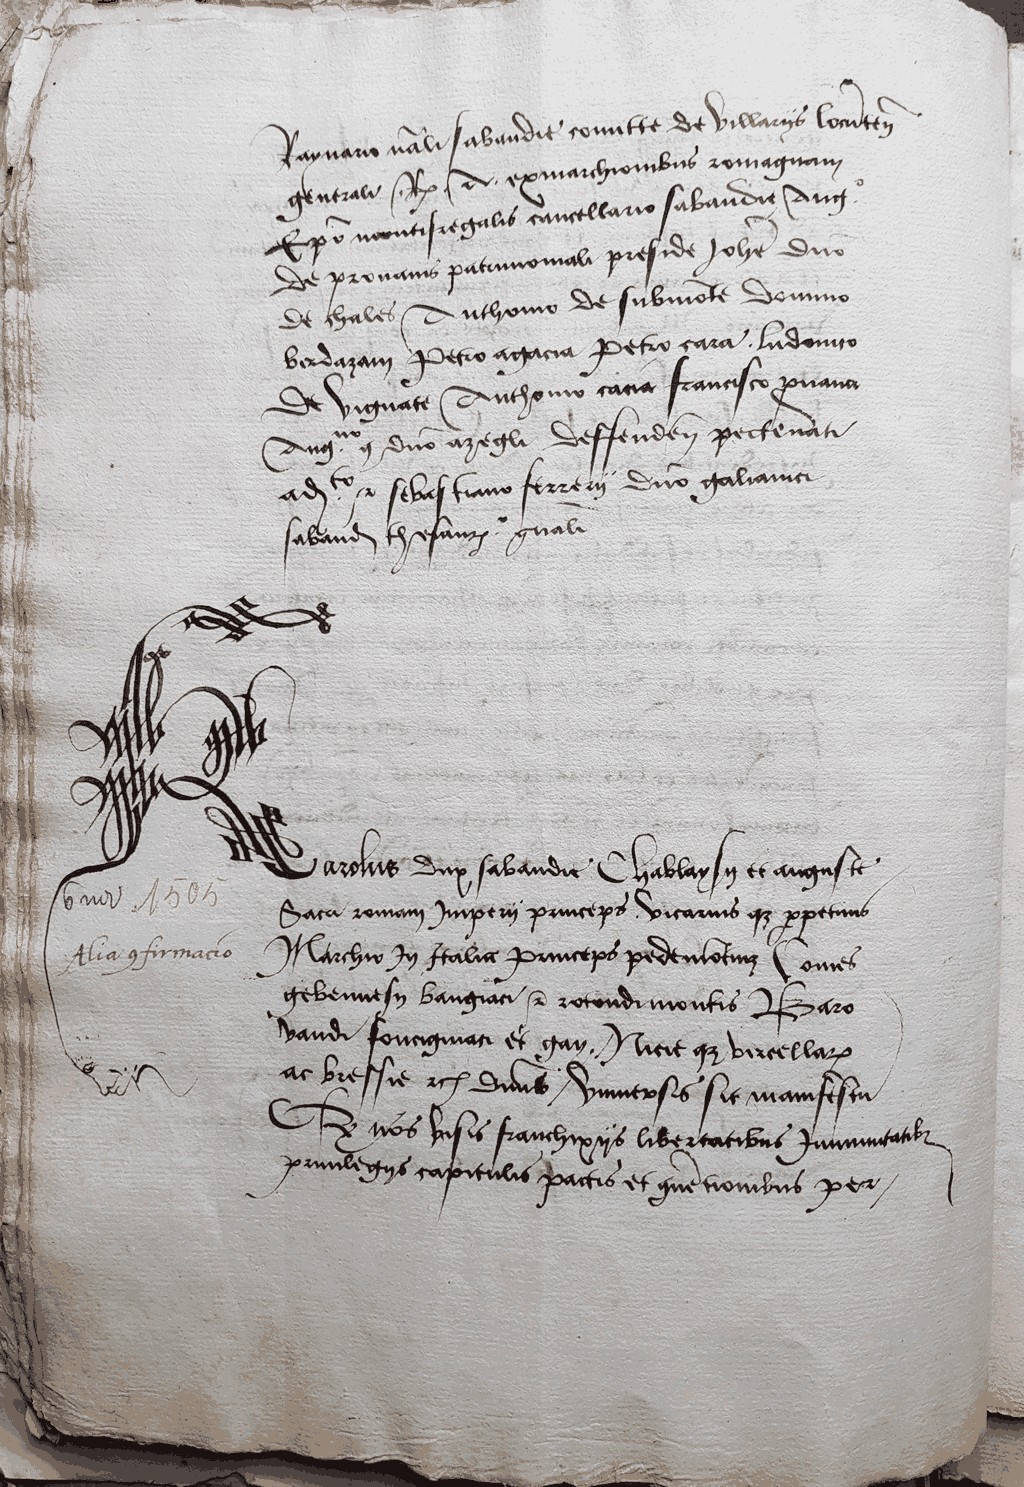 Raynario nãli sabaudie comitte de villariis locũteñ
generali R. A. ex marchionibus romagnani
Epõ montisregalis cancellario sabaudie Aug.º
de provanis patrimoniali preside Johẽ dño
de chales Anthonio de submõte domino
verdazani Petro agacia Petro cara. ludovico
de vignate Anthonio cacia francisco pvana
Aug.no q dño azegli deffendeñ pectenati
ad.to et sebastiano ferrerii dño galianici
sabaud thesaur.º gñali
Carolus dux sabaudie Chablaysii et auguste
Sacri romani Imperii princeps vicarius qz ppetuus
Marchio In Italia Princeps pedemõtiuz Comes
gebennesii baugiaci et rotondimontis Baro
vaudi foucigniaci et gay. Nicie qz vercellar
ac bressie etc dominus Universis sit manifestu
1505
Alia cfirmacio
Q nos visis franchixiis libertatibus Immunitatibz
privilegiis capitulis pactis et cvẽtionibus per